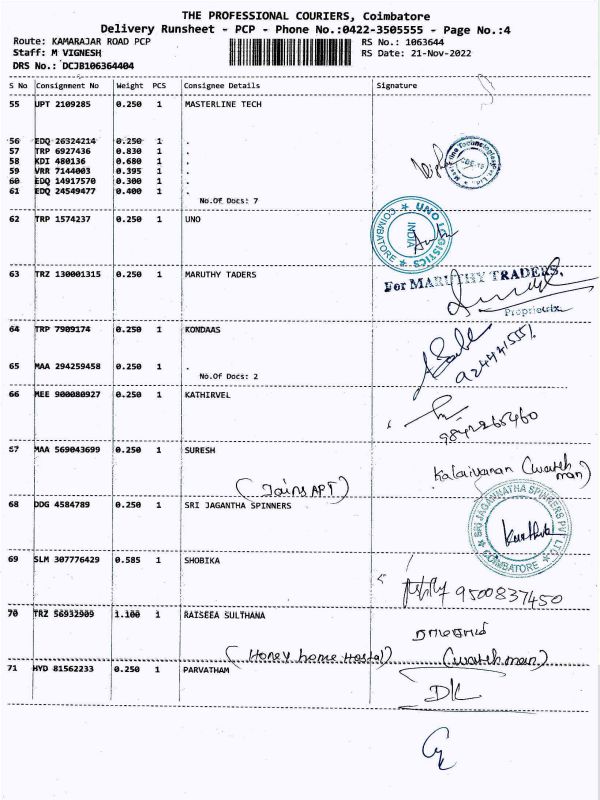 THE PROFESSIONAL COURIERS, Coimbatore
Delivery Runsheet - PCP - Phone No.:0422-3505555 - Page No.:4
Route: KAMARAJAR ROAD PCP RS No.: 1063644
Staff: M VIGNESH RS Date: 21-Nov-2022
DRS No.: DCJB106364404
S No Consignment No Weight PCS Consignee Details Signature
55 UPT 2109285 0.250 1 MASTERLINE TECH
56 EDQ 26324214 0.250 1 .
57 TRP 6927436 0.830 1 .
58 KDI 480136 0.680 1 .
59 VRR 7144003 0.395 1 .
60 EDQ 14917570 0.300 1 .
61 EDQ 24549477 0.400 1 .
No.Of Docs: 7
62 TRP 1574237 0.250 1 UNO
UNO LOGISTICS COIMBATORE INDIA
63 TRZ 130001315 0.250 1 MARUTHY TADERS
For MARUTHY TRADERS,
Proprietrix
64 TRP 7909174 0.250 1 KONDAAS
65 MAA 294259458 0.250 1 .
No.Of Docs: 2
66 MEE 900080927 0.250 1 KATHIRVEL
9842265460
67 MAA 569043699 0.250 1 SURESH
Kalaivanan (watchman)
(Jains APT)
68 DDG 4584789 0.250 1 SRI JAGANTHA SPINNERS
SRI JAGANNATHA SPINNERS PVT LTD. COIMBATORE
69 SLM 307776429 0.585 1 SHOBIKA
9500837450
70 TRZ 56932909 1.100 1 RAISEEA SULTHANA
(Honey home Hostel) (watchman)
71 HYD 81562233 0.250 1 PARVATHAM
DK